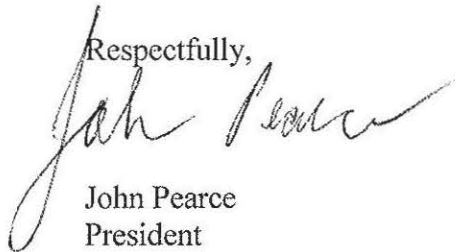 Respectfully,
John Pearce
John Pearce
President